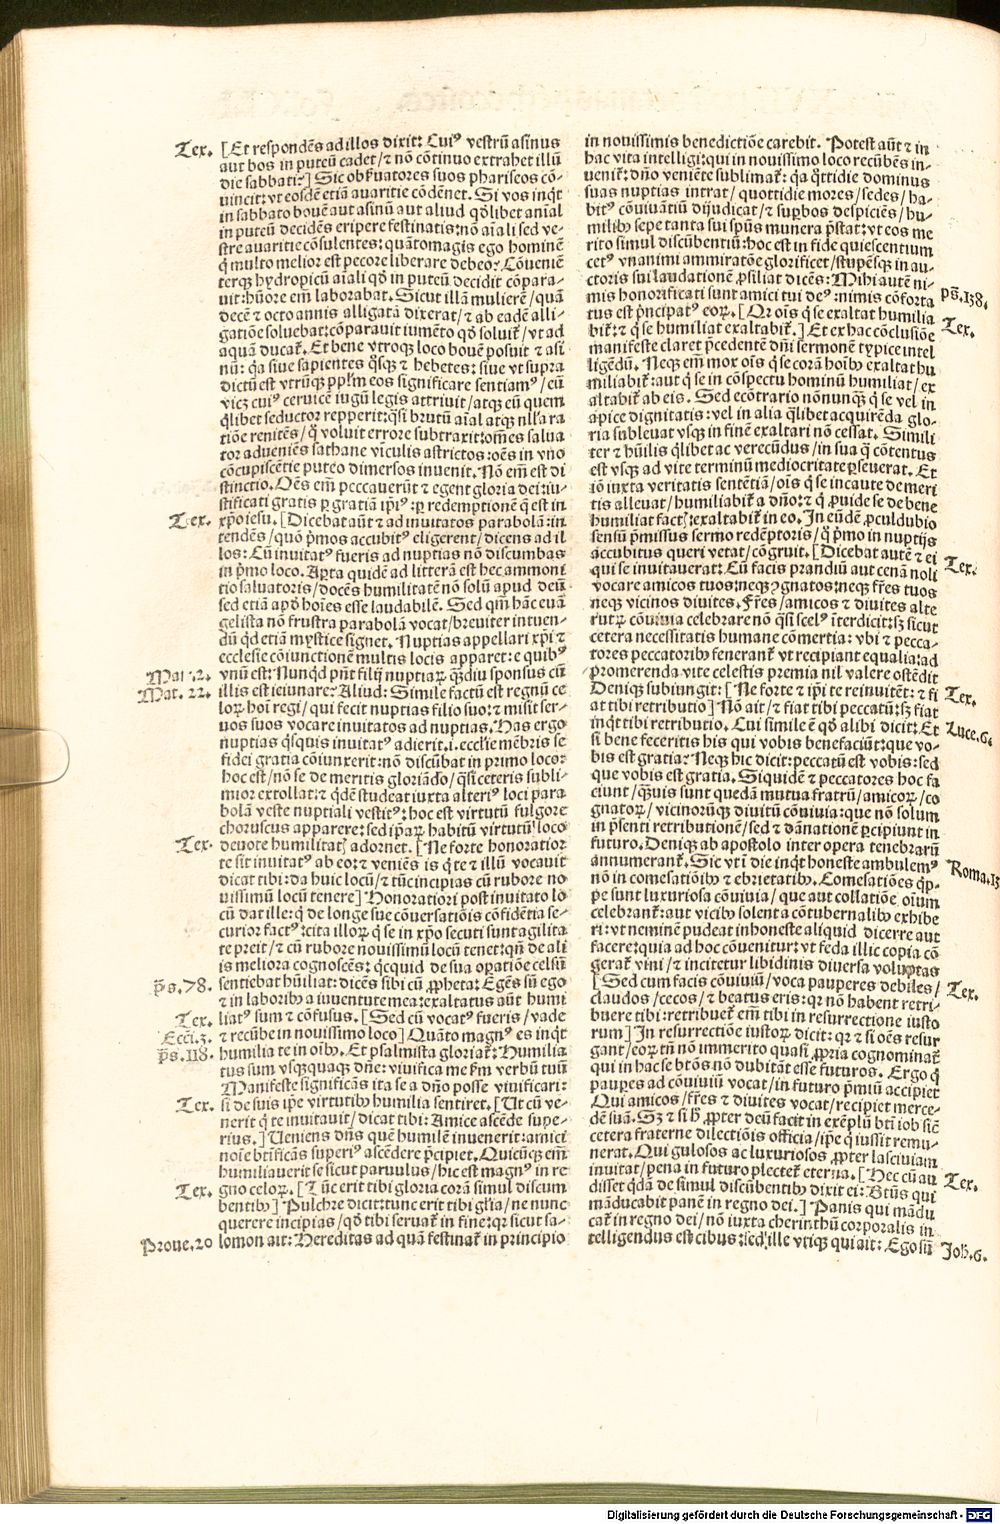 Tex. [Et respondēs ad illos dixit: Cuiꝰ vestrū asinus
aut bos in puteū cadet / ⁊ nō cōtinuo extrahet illū
die sabbati?] Sic obſuatores suos phariseos cō-
vincit: vt eosdē etiā avaritie cōdēnet. Si vos inqͥt
in sabbato bouē aut asinū aut aliud qd̄libet anīal
in puteū decidēs eripere festinatis: nō aīali sed ve-
stre avaritie cōsulentes: quātomagis ego hominē
q̄ multo melior est pecore liberare debeo? Cōveniē
terqꝫ hydropicū aīali qd̄ in puteū decidit cōpara-
uit: hūore em̄ laborabat. Sicut illā mulierē / quā
decē ⁊ octo annis alligatā dixerat / ⁊ ab eadē alli-
gatiōe soluebat: cōparauit iumēto qd̄ soluit̄ / vt ad
aquā ducat̄. Et bene vtroqꝫ loco bouē posuit ⁊ asi
nū: qͣ siue sapientes qͥsqꝫ ⁊ hebetes: siue vt supra
dictū est vtrūqꝫ pplm̄ eos significare sentiamꝰ / eū
vicꝫ cuiꝰ ceruicē iugū legis attriuit / atqꝫ eū quem
qͥlibet seductor repperit: qͣsi brutū aīal atqꝫ nll'a ra
tiōe renitēs / q̄ voluit errore subtraxit: om̄es salua
tor adueniēs sathane vinculis astrictos: oēs in vno
cōcupiscētie puteo dimersos invenit. Nō em̄ est di
stinctio. Oēs em̄ peccauerūt ⁊ egent gloria dei: iu-
stificati gratis ꝑ gratiā ip̄iꝰ: ꝑ redemptionē q̄ est in
Tex. xp̄o iesu. [Dicebat aūt ⁊ ad invitatos parabolā: in
tendēs / quō p̄mos accubitꝰ eligerent / dicens ad il
los: Cū invitatꝰ fueris ad nuptias nō discumbas
in p̄mo loco. Aꝑta quidē ad litterā est hec ammoni
tio saluatoris / docēs humilitatē nō solū apud deū
sed etiā apd̄ hoīes esse laudabilē. Sed qm̄ hāc euā
gelista nō frustra parabolā vocat / breuiter intuen-
dū qd̄ etiā mystice signet. Nuptias appellari xp̄i ⁊
ecclesie cōiunctionē multis locis apparet: e quibꝰ
Mat. 2. vnū est: Nunqͥd pn̄t filij nuptiaꝝ qͣdiu sponsus cū
Mat. 22. illis est ieiunare? Aliud: Simile factū est regnū ce
loꝝ hoī regi / qui fecit nuptias filio suo: ⁊ misit ser-
vos suos vocare invitatos ad nuptias. Has ergo
nuptias qͥsquis invitatꝰ adierit .i. eccl'ie mēbris se
fidei gratia cōiunxerit: nō discūbat in primo loco:
hoc est / nō se de meritis gloriādo / qͣsi ceteris subli-
mior extollat: ⁊ qͥdē studeat iuxta alteriꝰ loci para
bolā veste nuptiali vestitꝰ: hoc est virtutū fulgore
choruscus apparere: sed ip̄aꝝ habitū virtutū loco
Tex. deuote humilitatꝭ adornet. [Ne forte honoratior
te sit invitatꝰ ab eo: ⁊ veniēs is q̄ te ⁊ illū vocauit
dicat tibi: da huic locū / ⁊ tūc incipias cū rubore no
uissimū locū tenere] Honoratiori post invitato lo
cū dat ille: q̄ de longe sue cōversatiōis cōfidētia se-
curior factꝰ: cita illoꝝ q̄ se in xp̄o secuti sunt agilita
te preit / ⁊ cū rubore novissimū locū tenet: qn̄ de ali
is meliora cognoscēs: qͥcquid de sua oꝑatiōe celsū
ps. 78. sentiebat hūiliat: dicēs sibi cū ꝓpheta: Egēs sū ego
⁊ in laboribꝫ a iuuentute mea: exaltatus aūt humi
Tex. liatꝰ sum ⁊ cōfusus. [Sed cū vocatꝰ fueris / vade
Ecci. 3. ⁊ recūbe in nouissimo loco] Quāto magnꝰ es inqͥt
ps. 118. humilia te in oībꝫ. Et psalmista gloriat̄: Humilia
tus sum vsqꝫquaqꝫ dn̄e: viuifica me km̄ verbū tuū
Manifeste significās ita se a dn̄o posse viuificari:
Tex. si de suis ip̄e virtutibꝫ humilia sentiret. [Ut cū ve-
nerit q̄ te invitauit / dicat tibi: Amice ascēde supe-
rius.] Veniens dn̄s quē humilē invenerit: amici
noīe btīficās superiꝰ ascēdere p̄cipiet. Quicūqꝫ em̄
humiliauerit se sicut paruulus / hic est magnꝰ in re
Tex. gno celoꝝ. [Tūc erit tibi gloria corā simul discum
bentibꝫ] Pulchre dicit: tunc erit tibi gl'ia / ne nunc
querere incipias / qd̄ tibi seruat̄ in fine: qr sicut sa-
Proue. 20 lomon ait: Hereditas ad quā festinat̄ in principio
in nouissimis benedictiōe carebit. Potest aūt ⁊ in
hac vita intelligi: qui in nouissimo loco recūbēs in-
uenit̄: dn̄o veniēte sublimat̄: qͣ qͦttidie dominus
suas nuptias intrat / quottidie mores / sedes / ha-
bitꝰ cōviuātiū dijudicat / ⁊ suꝑbos despiciēs / hu-
milibꝫ sepe tanta sui spūs munera p̄stat: vt eos me
rito simul discūbentiū: hoc est in fide quiescentium
cetꝰ vnanimi ammiratōe glorificet / stupēsqꝫ in au-
ctoris sui laudationē ꝓsiliat dicēs: Mihi autē ni- ps. 138.
mis honorificati sunt amici tui deꝰ: nimis cōforta
tus est p̄ncipatꝰ eoꝝ. [Qr oīs q̄ se exaltat humilia Tex.
bit̄: ⁊ q̄ se humiliat exaltabit̄.] Et ex hac cōclusiōe
manifeste claret p̄cedentē dn̄i sermonē typice intel
ligēdū. Neqꝫ em̄ mox oīs q̄ se corā hoībꝫ exaltat hu
miliabit̄: aut q̄ se in cōspectu hominū humiliat / ex
altabit̄ ab eis. Sed ecōtrario nōnunqꝫ q̄ se vel in
apice dignitatis: vel in alia qͣlibet acquirēda glo-
ria subleuat vsqꝫ in finē exaltari nō cessat. Simili
ter ⁊ hūilis qͥlibet ac verecūdus / in sua q̄ cōtentus
est vsqꝫ ad vite terminū mediocritate ꝑseuerat. Et
iō iuxta veritatis sentētiā / oīs q̄ se incaute de meri
tis alleuat / humiliabit̄ a dn̄o: ⁊ q̄ ꝓuide se de bene
humiliat factꝭ: exaltabit̄ in eo. In eūdē ꝓculdubio
sensū p̄missus sermo redēptoris / q̄ p̄mo in nuptijs
accubitus queri vetat / cōgruit. [Dicebat autē ⁊ ei
qui se invitauerat: Cū facis prandiū aut cenā noli Tex.
vocare amicos tuos: neqꝫ ꝯgnatos: neqꝫ fr̄es tuos
neqꝫ vicinos divites. Fr̄es / amicos ⁊ divites alte
rutꝝ cōviuia celebrare nō qͣsi scelꝰ īterdicit: sꝫ sicut
cetera necessitatis humane cōmertia: vbi ⁊ pecca-
tores peccatoribꝫ fenerant̄ vt recipiant equalia: ad
promerenda vite celestis premia nil valere ostēdit
Denique subiungit: [Ne forte ⁊ ip̄i te reinuitēt: ⁊ fi Tex.
at tibi retributio] Nō ait / ⁊ fiat tibi peccatū: sꝫ fiat
inqͥt tibi retributio. Cui simile ē qd̄ alibi dicit: Et Luce. 6.
si bene feceritis his qui vobis benefaciūt: que vo-
bis est gratia? Neqꝫ hic dicit: peccatū est vobis: sed
que vobis est gratia. Siquidē ⁊ peccatores hoc fa
ciunt / qͣuis sunt quedā mutua fratrū / amicoꝝ / co
gnatoꝝ / vicinorūqꝫ divitū cōviuia: que nō solum
in p̄senti retributionē / sed ⁊ dānationē ꝑcipiunt in
futuro. Denique ab apostolo inter opera tenebrarū
annumerant̄. Sic vt ī die inqͥt honeste ambulemꝰ
nō in comesatiōibꝫ ⁊ ebrietatibꝫ. Comesatiōes qͥp- Roma. 13
pe sunt luxuriosa cōviuia / que aut collatiōe oīum
celebrant̄: aut vicibꝫ solent a cōtubernalibꝫ exhibe
ri: vt neminē pudeat inhoneste aliquid dicerre aut
facere: quia ad hoc cōvenitur: vt feda illic copia cō
gerat̄ vini / ⁊ incitetur libidinis diuersa voluptas
[Sed cum facis cōviuiū / voca pauperes debiles / Tex.
claudos / cecos / ⁊ beatus eris: qr nō habent retri-
buere tibi: retribuet̄ em̄ tibi in resurrectione iusto
rum] In resurrectiōe iustoꝝ dicit: qr ⁊ si oēs resur
gant / eoꝝ tn̄ nō immerito quasi ꝓpria cognominat̄
qui in hac se btōs nō dubitāt esse futuros. Ergo q̄
pauꝑes ad cōviuiū vocat / in futuro p̄miū accipiet
Qui amicos / fr̄es ⁊ divites vocat / recipiet merce-
dē suā. Sꝫ ⁊ si h̄ ꝓpter deū facit in exēplū btī iob sic̄
cetera fraterne dilectiōis officia / ip̄e q̄ iussit remu-
nerat. Qui gulosos ac luxuriosos ꝓpter lasciuiam
invitat / pena in futuro plectet̄ eterna. [Hec cū au
disset qͥdā de simul discūbentibꝫ dixit ei: Btūs qui Tex.
māducabit panē in regno dei.] Panis qui mādu
cat̄ in regno dei / nō iuxta cherinthū corporalis in
telligendus est cibus: sed ille vtiqꝫ qui ait: Ego sū Joh. 6.
Digitalisierung gefördert durch die Deutsche Forschungsgemeinschaft - DFG